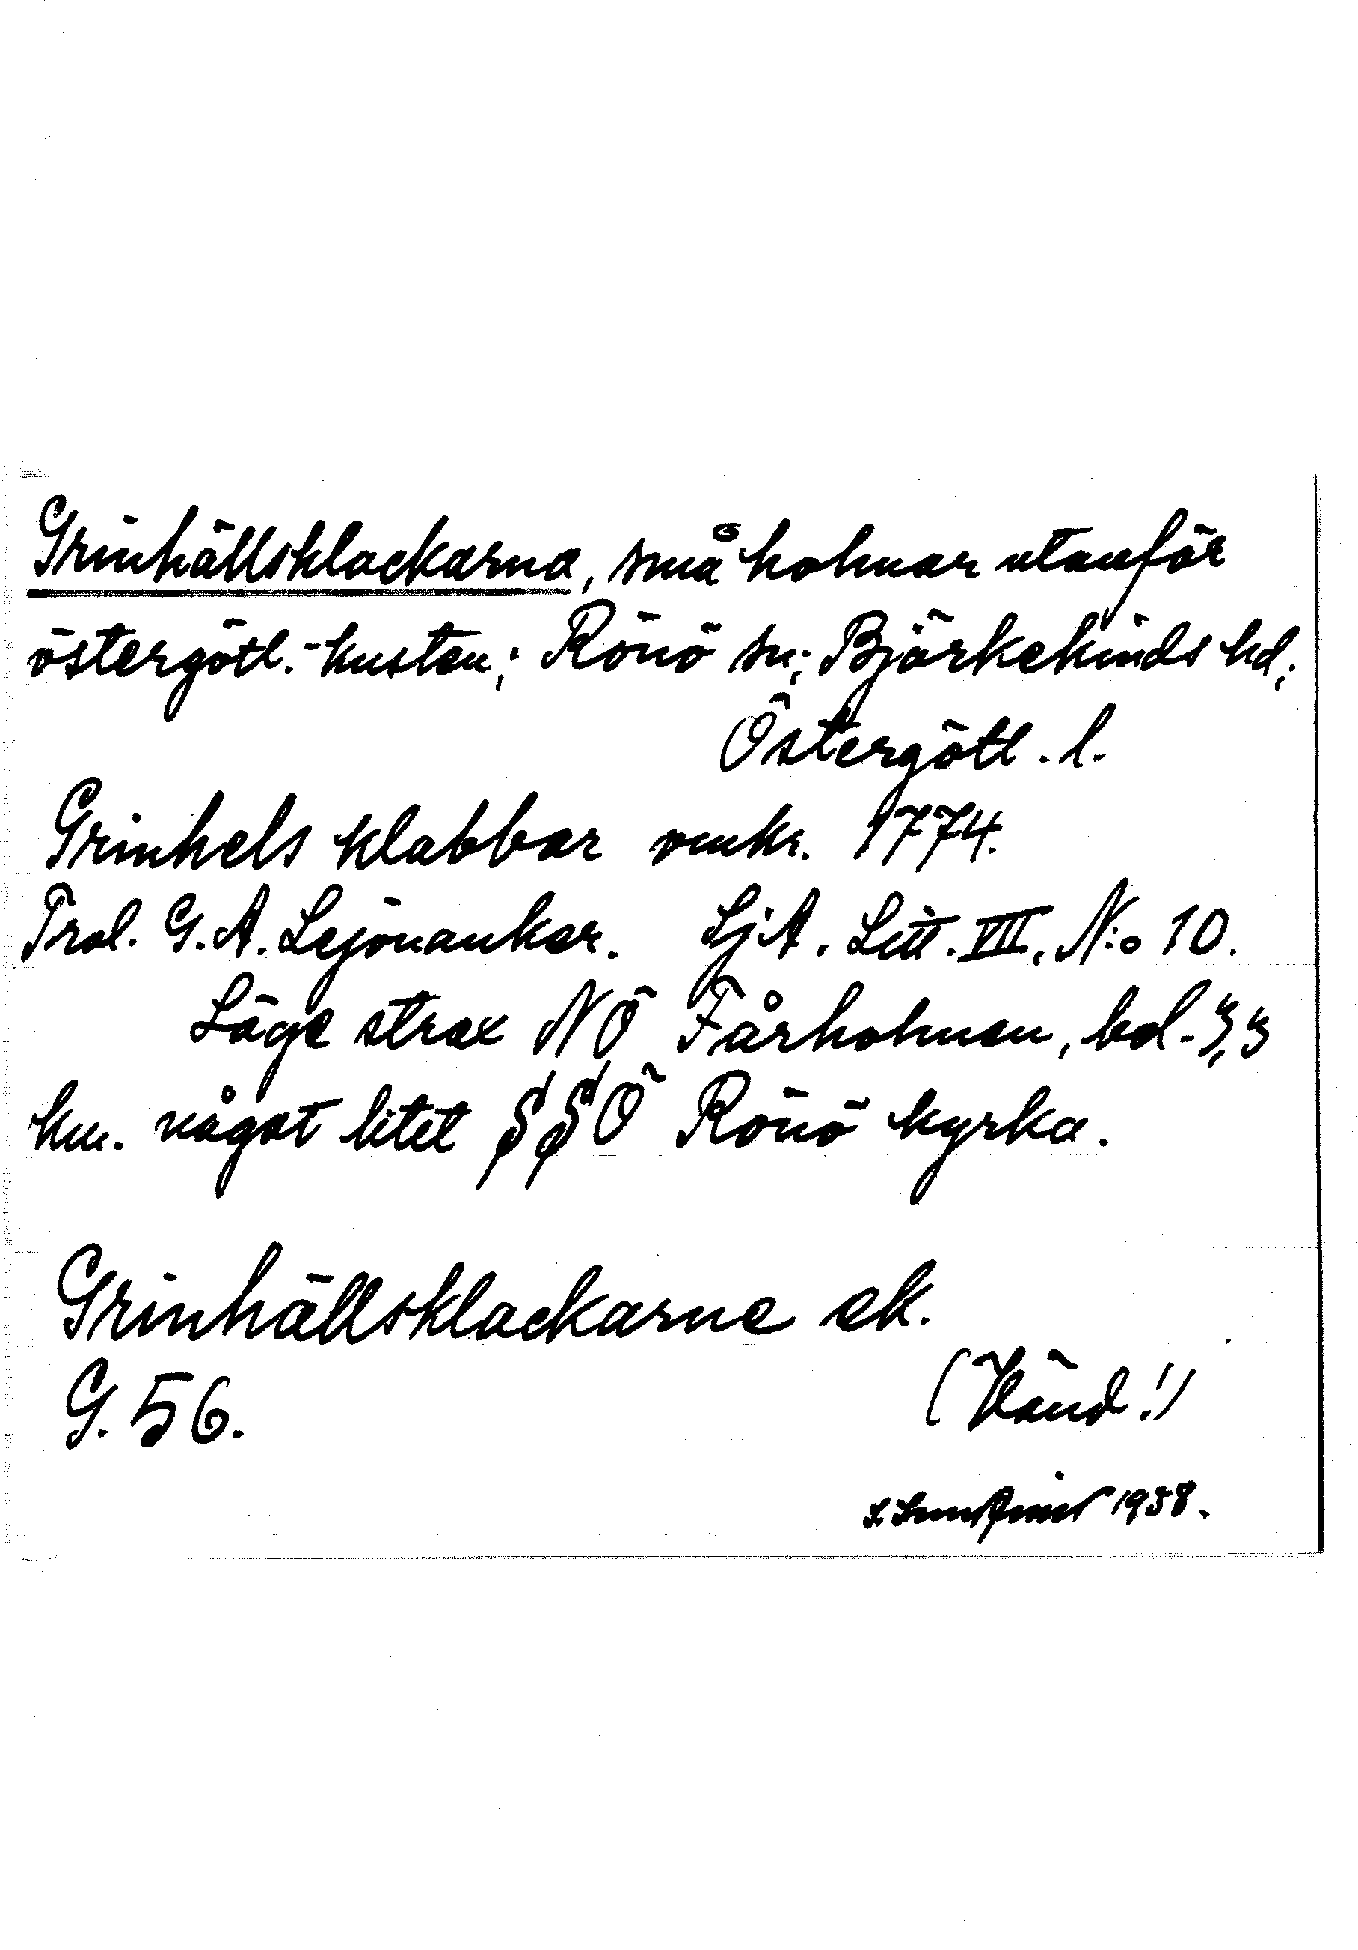 Grinhällsklackarna, små holmar utanför
östergötl.-kusten; Rönö sn; Björkekinds hd;
Östergötl. l.
Grinhels klabbar omkr. 1774.
Trol. G. A. Lejonankar. SjA. Litt. VII. N:o 10.
Läge strax NÖ Fårholmen, bd. 3,3
km. något litet SSÖ Rönö kyrka.
Grinhällsklackarne ek.
G. 56.
(Vänd!)
1938.